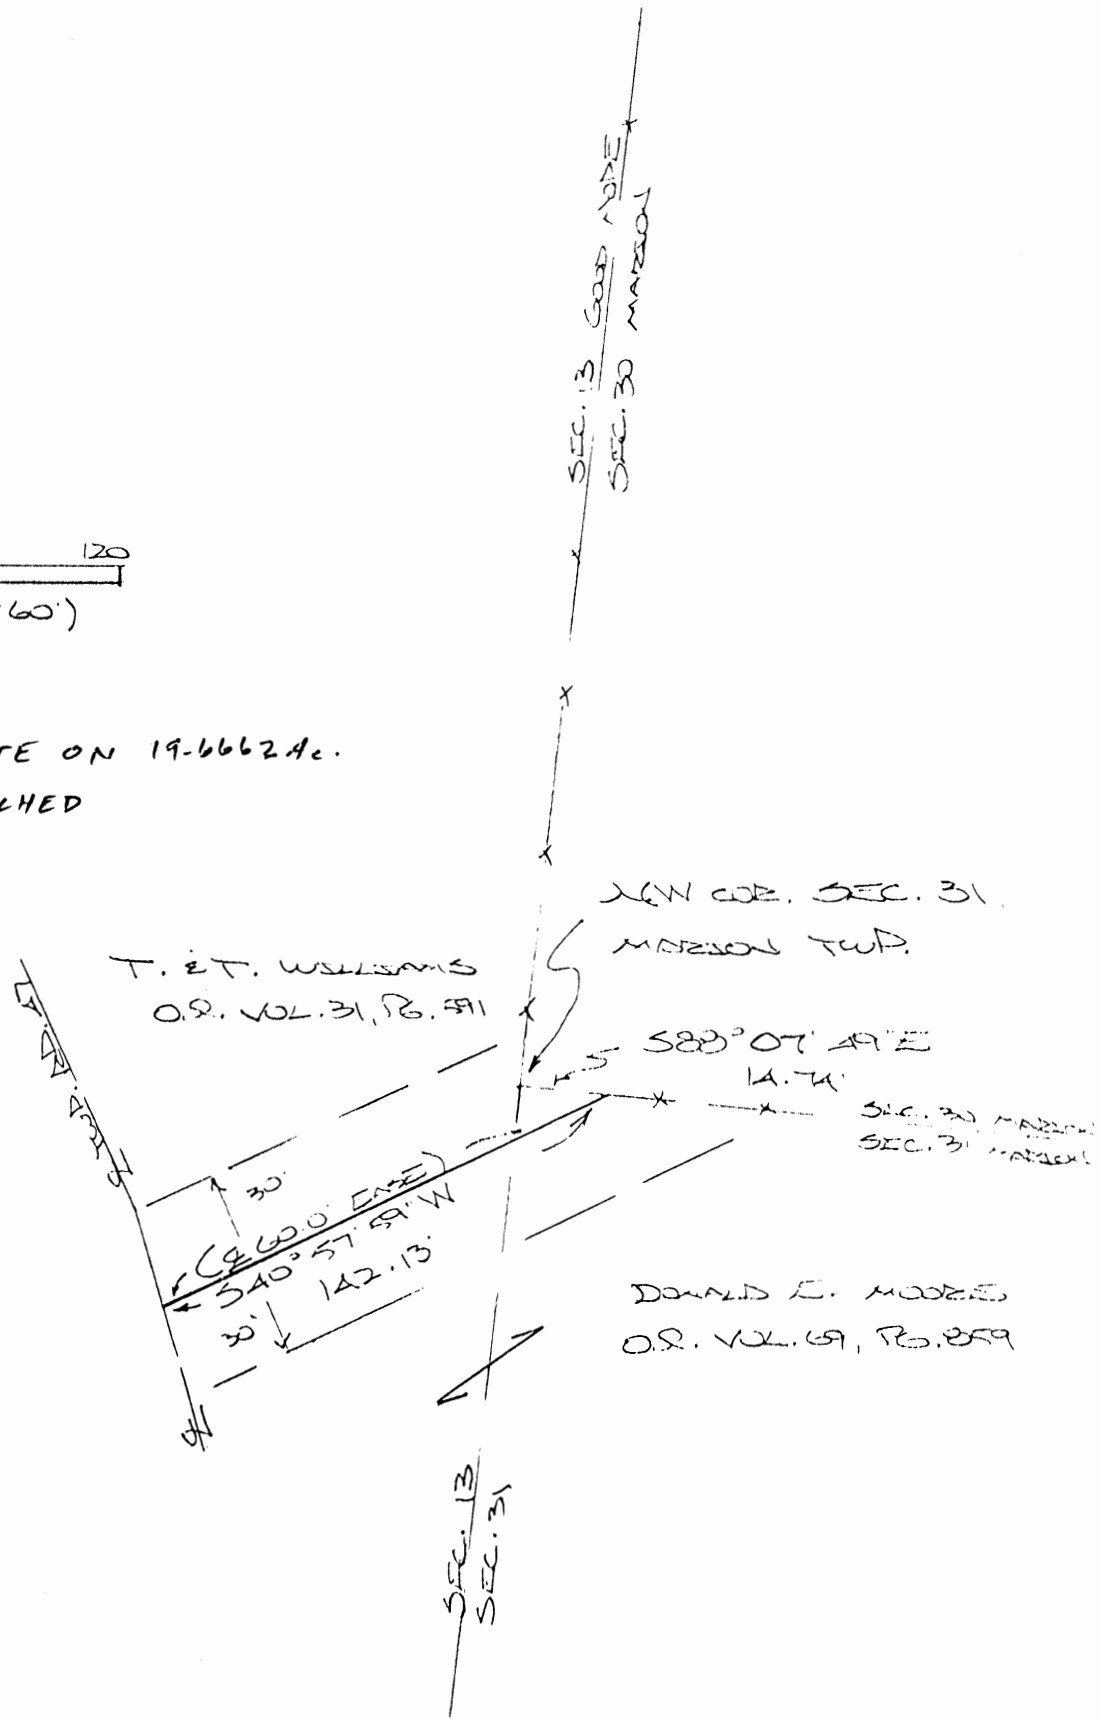 SEC. 13 GOOD HOPE
SEC. 30 MARION
120
60')
TE ON 19.6662 Ac.
CHED
NW COR. SEC. 31
MARION TWP.
T. & T. WILLIAMS
O.R. VOL. 31, PG. 591
S88° 07' 49" E
14.74'
SEC. 30 MARION
SEC. 31 MARION
TWP. RD.
30'
(℄ 60.0' EASE)
S40° 57' 59" W
142.13'
30'
DONALD E. MOORE
O.R. VOL. 69, PG. 859
℄
SEC. 13
SEC. 31